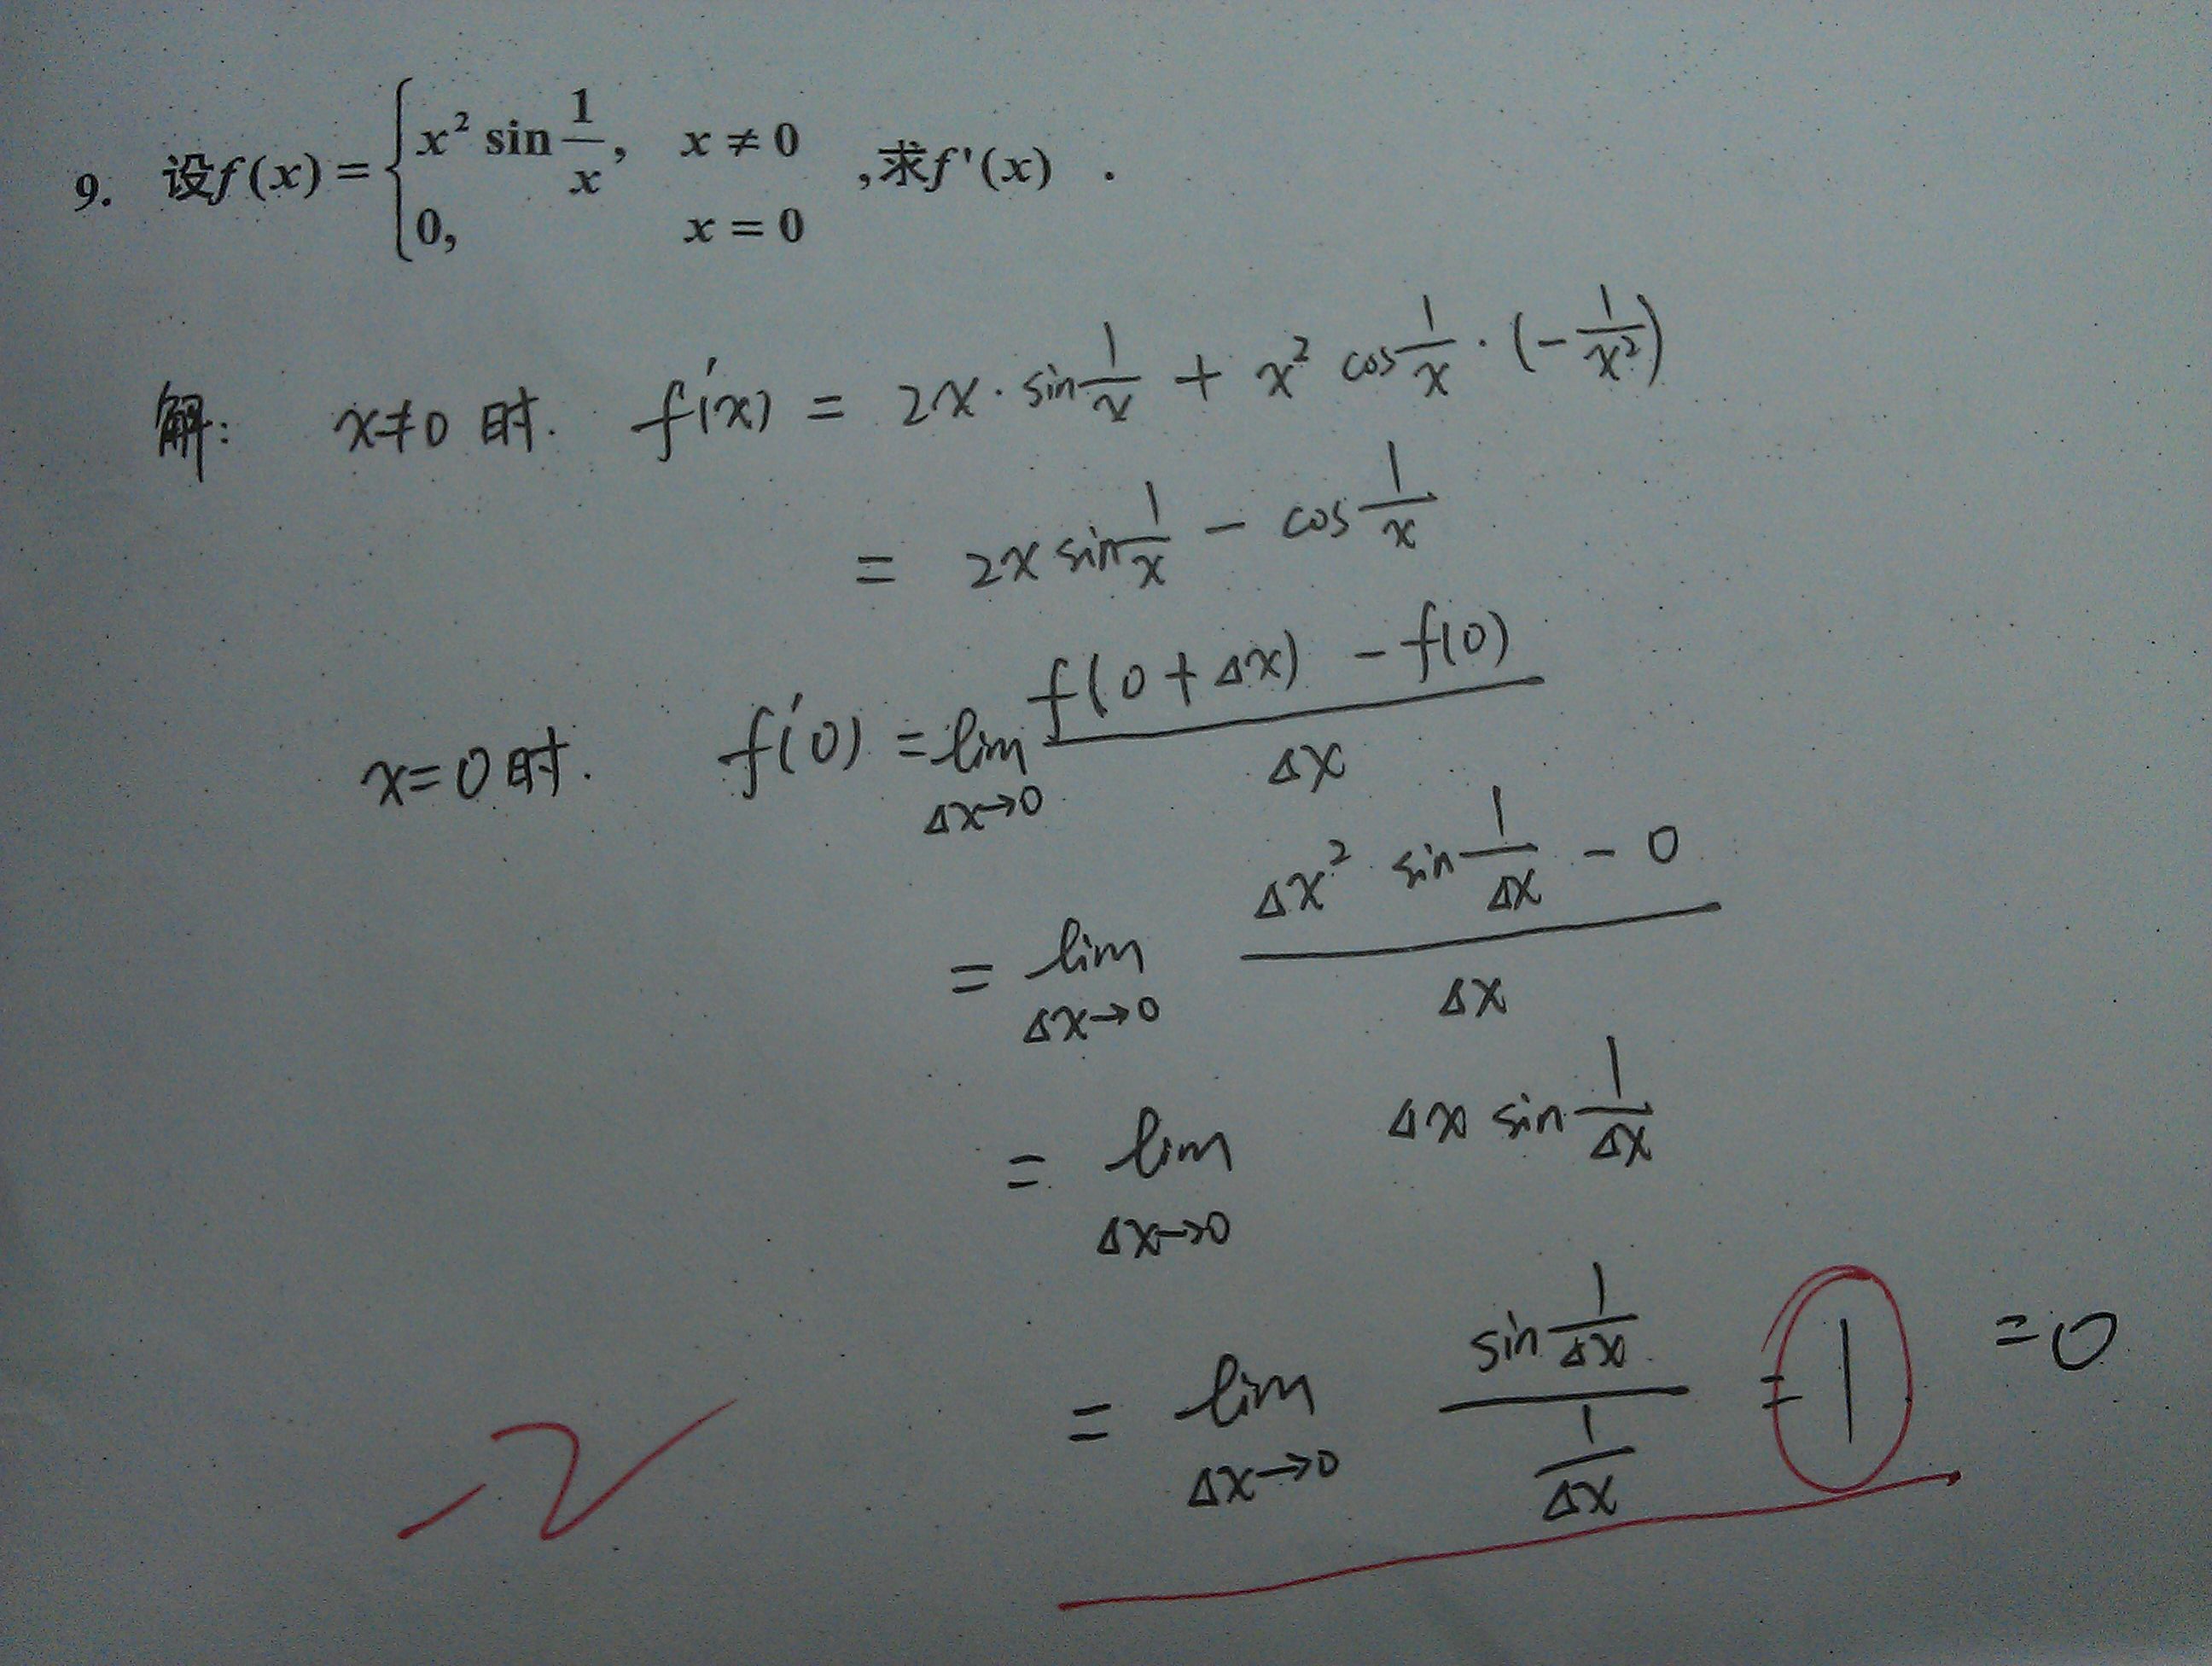 9. 设f(x) = { x² sin 1/x, x ≠ 0
0, x = 0 ,求f'(x) .
解: x≠0 时. f'(x) = 2x · sin 1/x + x² cos 1/x · (-1/x²)
= 2x sin 1/x - cos 1/x
x=0时. f'(0) = lim Δx→0 (f(0+Δx) - f(0))/Δx
= lim Δx→0 (Δx² sin 1/Δx - 0)/Δx
= lim Δx→0 Δx sin 1/Δx
= lim Δx→0 (sin 1/Δx)/(1/Δx) = 1 = 0
-2